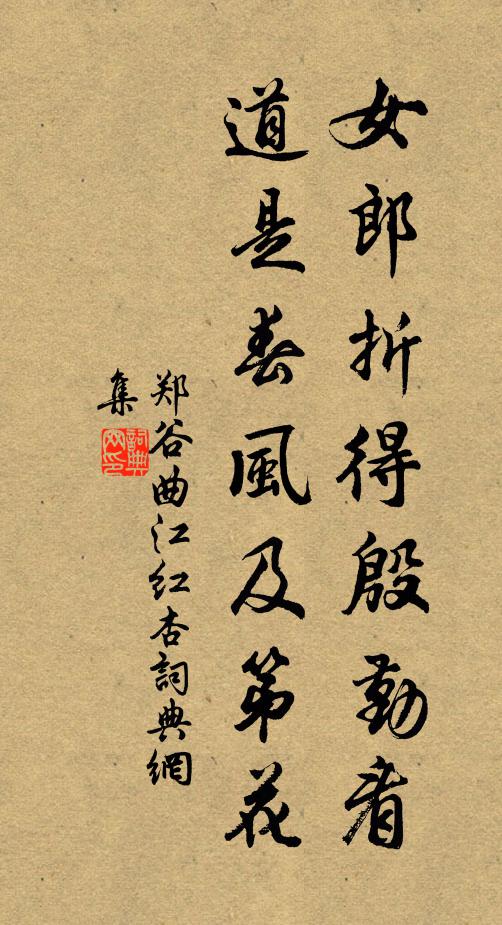 女郎折得殷勤看
道是春風及第花
郑谷曲江红杏詞典網
集
詞典網印